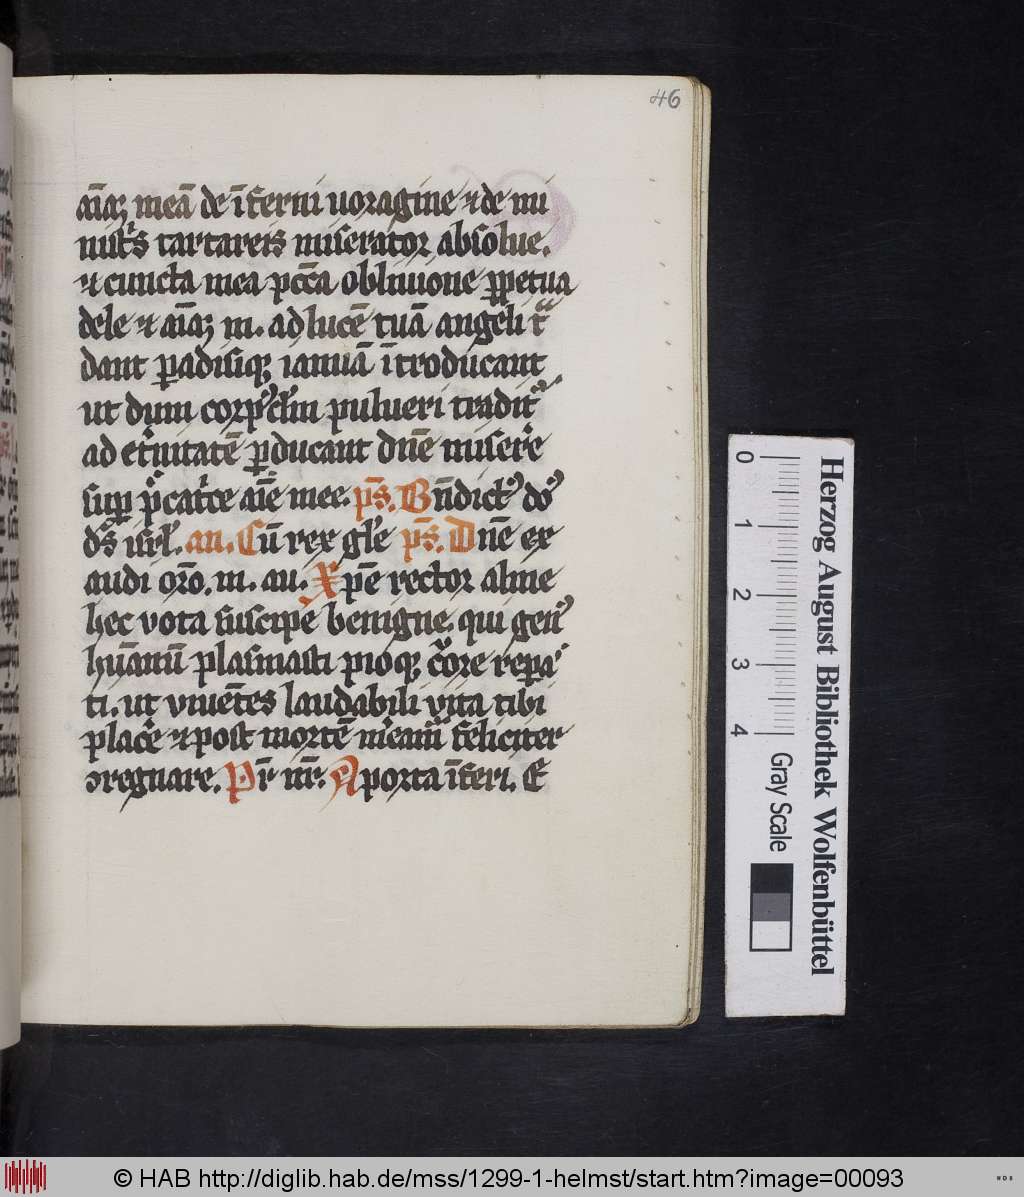 46
aīaꝫ meā de īferni uoragine ⁊ de mi
nist͛s tartareis miserator absolue.
⁊ cuncta mea pccā obliuione ꝑpetua
dele ⁊ aīaꝫ m. ad lucē tuā angeli tͣ
dant ꝑadisiqꝫ ianuā ītroducant
ut dum corpꝰclm pulueri tradit᷑
ad et͛nitatē ꝑducant dn̄e miser͛e
suꝑ p̊cat͛ce aīe mee. ps̄. Bn̄dictꝰ do᷒
ds̄ isrl̄. an. Cū rex gl̄e ps̄. Dn̄e ex
audi orō. m. an. Xp̄e rector alme
hec vota suscipe benigne. qui genꝰ
hūanū plasmasti pioqꝫ c͛ore repa
ti. ut viuētes laudabili vita tibi
plac͛e ⁊ post mortē m͛eam᷑ feliciter
ꝯregnare. Pr̄ nr̄. A porta īferi. E
Herzog August Bibliothek Wolfenbüttel
0 1 2 3 4
Gray Scale
© HAB http://diglib.hab.de/mss/1299-1-helmst/start.htm?image=00093